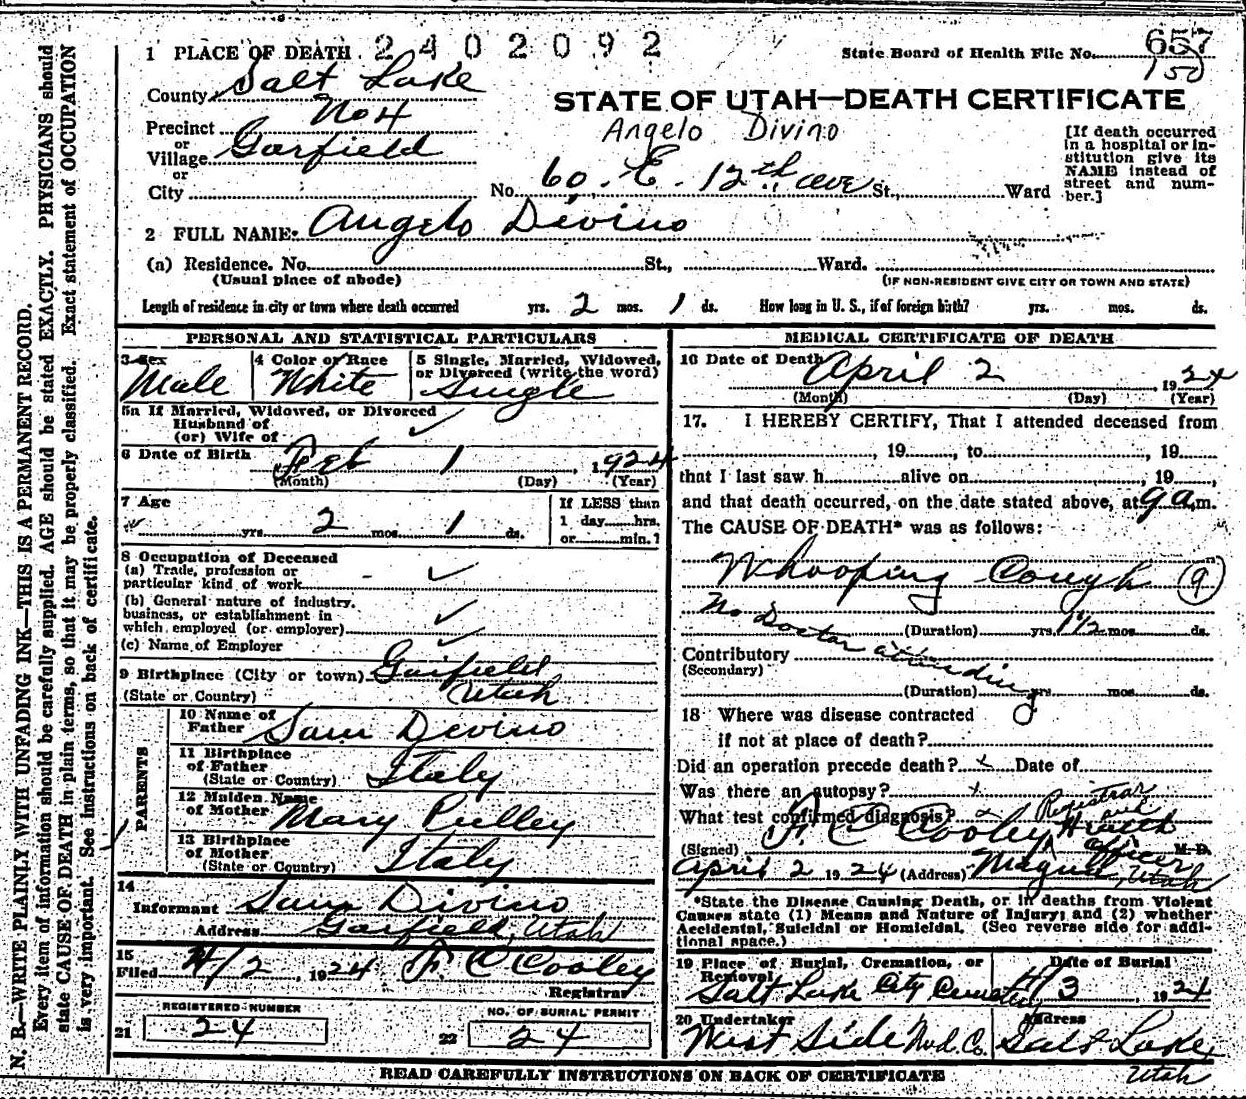 1 PLACE OF DEATH 2402092 State Board of Health File No. 657
150
County Salt Lake
STATE OF UTAH—DEATH CERTIFICATE
Precinct No 4
Angelo Divino
or
Village Garfield
or
City No. 60. E. 12th ave St., Ward
[If death occurred
in a hospital or in-
stitution give its
NAME instead of
street and num-
ber.]
2 FULL NAME Angelo Divino
(a) Residence. No. St., Ward.
(Usual place of abode) (IF NON-RESIDENT GIVE CITY OR TOWN AND STATE)
Length of residence in city or town where death occurred yrs. 2 mos. 1 ds. How long in U. S., if of foreign birth? yrs. mos. ds.
PERSONAL AND STATISTICAL PARTICULARS
3 Sex Male
4 Color or Race White
5 Single, Married, Widowed,
or Divorced (write the word)
Single
5a If Married, Widowed, or Divorced
Husband of
(or) Wife of ✓
6 Date of Birth Feb 1, 1924
(Month) (Day) (Year)
7 Age
yrs. 2 mos. 1 ds.
If LESS than
1 day hrs.
or min.?
8 Occupation of Deceased
(a) Trade, profession or
particular kind of work ✓
(b) General nature of industry,
business, or establishment in
which employed (or employer) ✓
(c) Name of Employer ✓
9 Birthplace (City or town) Garfield
(State or Country) Utah
PARENTS
10 Name of
Father Sam Divino
11 Birthplace
of Father
(State or Country) Italy
12 Maiden Name
of Mother Mary Pulley
13 Birthplace
of Mother
(State or Country) Italy
14
Informant Sam Divino
Address Garfield, Utah
15
Filed 4/2, 1924 F. C Cooley
Registrar
REGISTERED NUMBER
21 24
NO. OF BURIAL PERMIT
22 24
MEDICAL CERTIFICATE OF DEATH
16 Date of Death April 2, 1924
(Month) (Day) (Year)
17. I HEREBY CERTIFY, That I attended deceased from
, 19 , to , 19
that I last saw h alive on , 19 ,
and that death occurred, on the date stated above, at 9 a.m.
The CAUSE OF DEATH* was as follows:
Whooping Cough (9)
No Doctor attending
(Duration) yrs. 1 1/2 mos. ds.
Contributory
(Secondary)
(Duration) yrs. mos. ds.
18 Where was disease contracted
if not at place of death?
Did an operation precede death? x Date of
Was there an autopsy? x
What test confirmed diagnosis?
(Signed) F. C Cooley Registrar and Health officer M. D.
April 2 1924 (Address) Magna, Utah
*State the Disease Causing Death, or in deaths from Violent
Causes state (1) Means and Nature of Injury; and (2) whether
Accidental, Suicidal or Homicidal. (See reverse side for addi-
tional space.)
19 Place of Burial, Cremation, or
Removal
Salt Lake City Cemetery
Date of Burial
4/3, 1924
20 Undertaker
West Side Und. Co.
Address
Salt Lake
Utah
READ CAREFULLY INSTRUCTIONS ON BACK OF CERTIFICATE
N. B.—WRITE PLAINLY WITH UNFADING INK—THIS IS A PERMANENT RECORD.
Every item of information should be carefully supplied. AGE should be stated EXACTLY. PHYSICIANS should
state CAUSE OF DEATH in plain terms, so that it may be properly classified. Exact statement of OCCUPATION
is very important. See instructions on back of certificate.